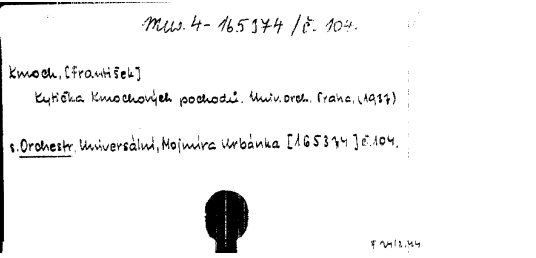 Mus. 4 - 165374 / č. 104.
Kmoch, [František]
Kytička Kmochových pochodů. Univ. orch. Praha, (1937)
s. Orchestr. Universální, Mojmíra Urbánka [165374] č. 104.